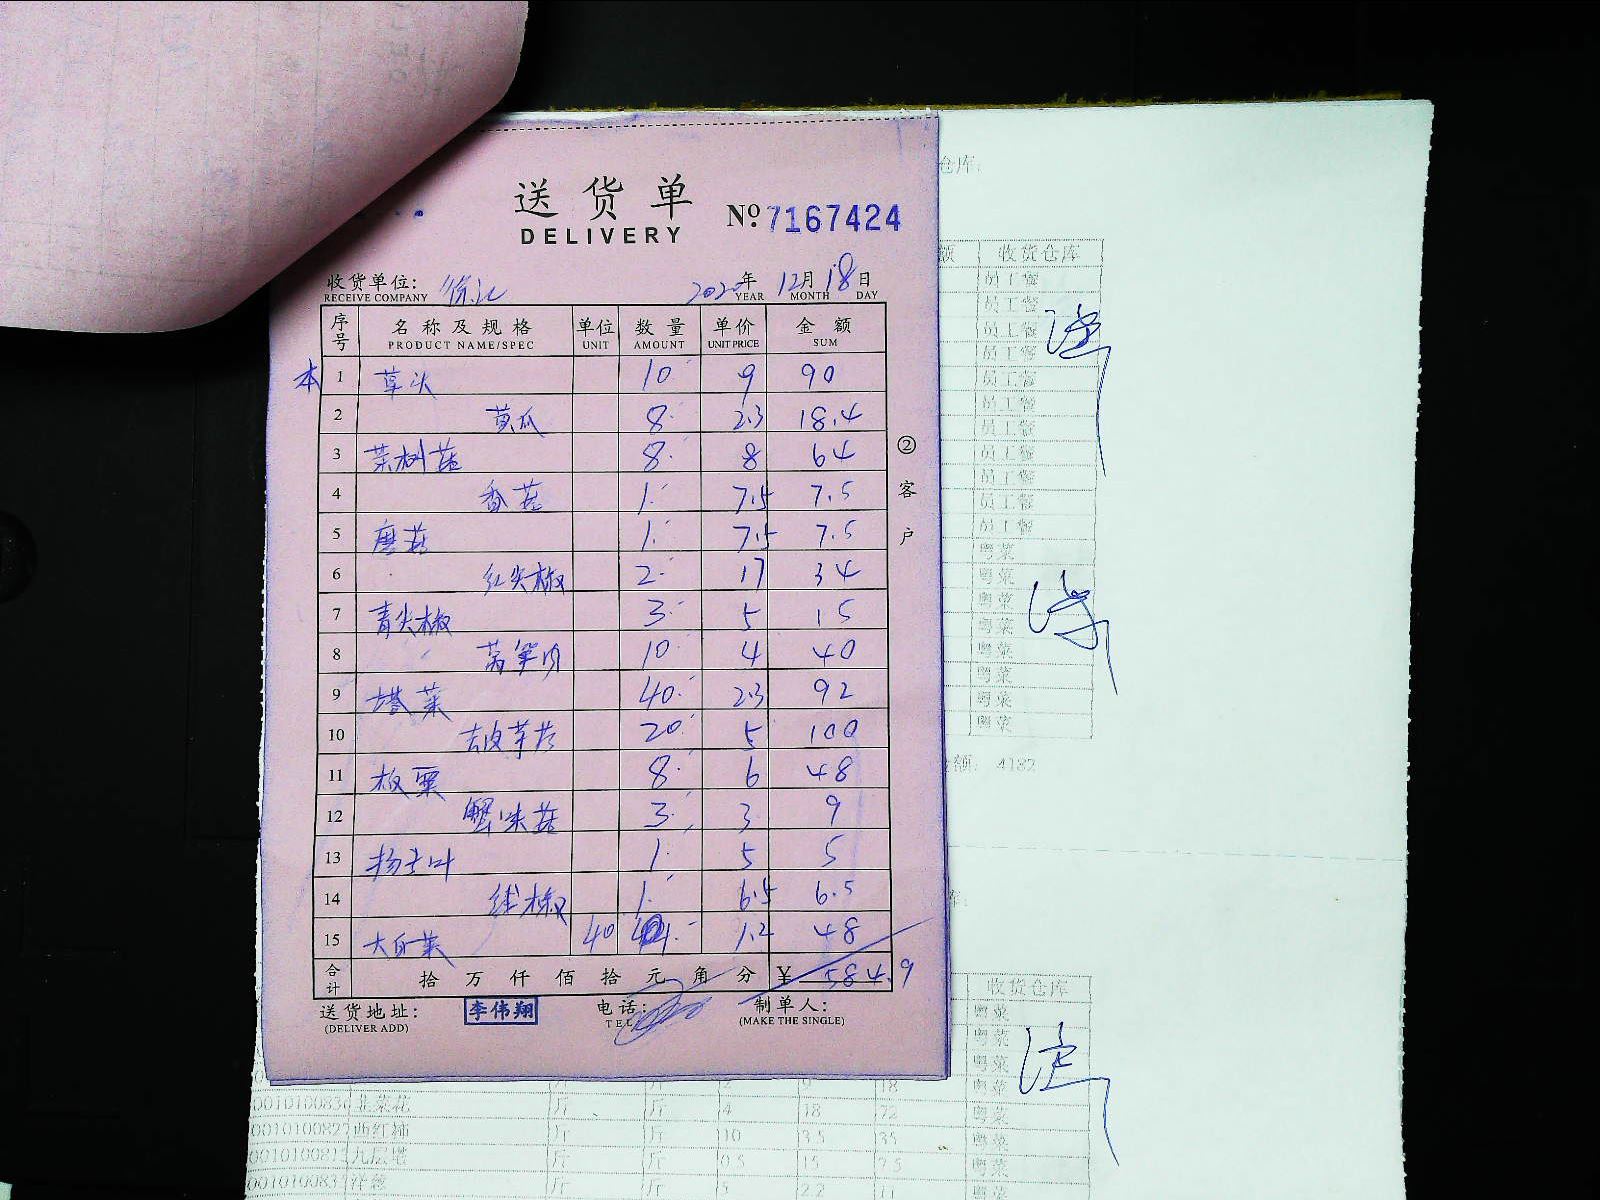 送货单
DELIVERY
№ 7167424
收货单位: 徐汇 2020年 12月 18日
RECEIVE COMPANY YEAR MONTH DAY
序号 名称及规格 单位 数量 单价 金额
PRODUCT NAME/SPEC UNIT AMOUNT UNIT PRICE SUM
本 1 草头 10 9 90
2 黄瓜 8 2.3 18.4
3 茶树菇 8 8 64
4 香菇 1 7.5 7.5
5 磨菇 1 7.5 7.5
6 红尖椒 2 17 34
7 青尖椒 3 5 15
8 莴笋肉 10 4 40
9 塔菜 40 2.3 92
10 去皮芋艿 20 5 100
11 板栗 8 6 48
12 蟹味菇 3 3 9
13 5 5
14 线椒 1 6.5 6.5
15 大白菜 40 1.2 48
合计 拾 万 仟 佰 拾 元 角 分 ¥ 584.9
送货地址: 李伟翔 电话: 制单人:
(DELIVER ADD) TEL (MAKE THE SINGLE)
②客户
仓库:
额 收货仓库
员工餐
员工餐
员工餐
员工餐
员工餐
员工餐
员工餐
员工餐
员工餐
员工餐
员工餐
粤菜
粤菜
粤菜
粤菜
粤菜
粤菜
粤菜
粤菜
额: 4182
库:
收货仓库
粤菜
粤菜
粤菜
斤 斤 18 粤菜
韭菜花 斤 斤 4 18 72 粤菜
西红柿 斤 斤 10 3.5 35 粤菜
九层塔 斤 斤 0.5 15 7.5 粤菜
洋葱 斤 斤 5 2.2 11 粤菜